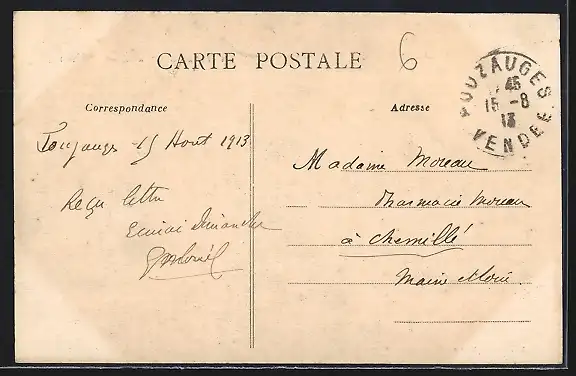 CARTE POSTALE
6
Correspondance
Adresse
POUZAUGES
45
15 -8
13
VENDEE
Pouzauges 15 Aout 1913
Reçu lettre
Ecrirai Dimanche
Gabriel
Madame Moreau
Pharmacie Moreau
à Chemillé
Maine & Loire